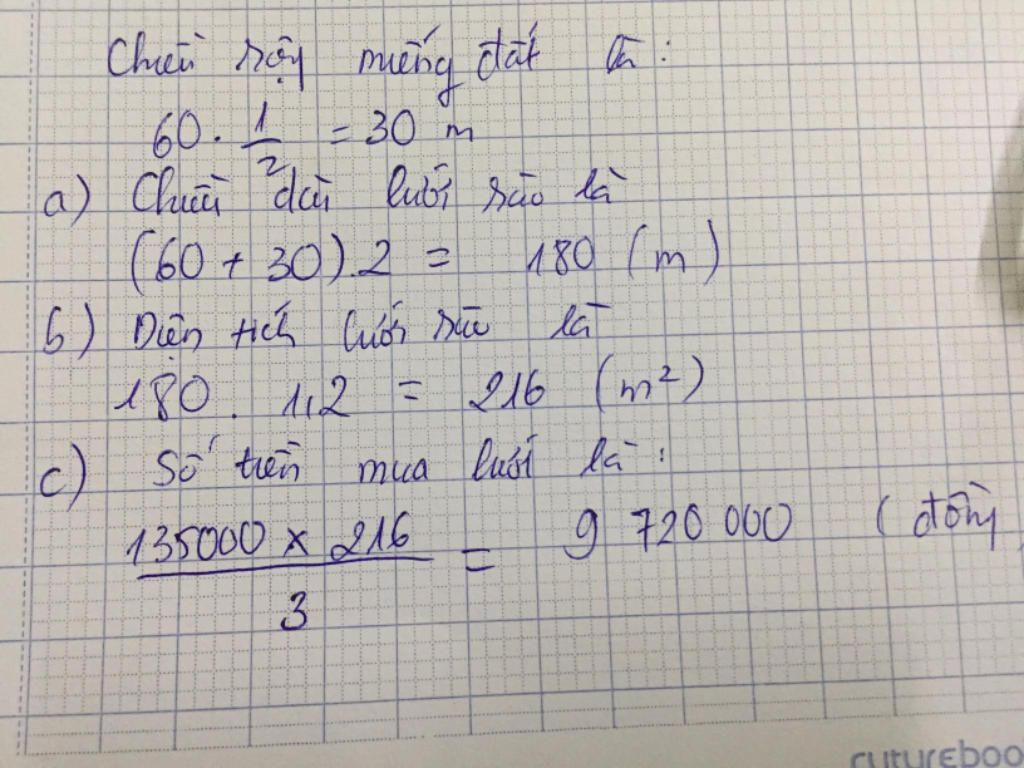 Chiều rộng miếng đất là:
60 . 1/2 = 30 m
a) Chiều dài lưới rào là
(60 + 30).2 = 180 (m)
b) Diện tích lưới rào là
180 . 1,2 = 216 (m²)
c) Số tiền mua lưới là:
135000 x 216 / 3 = 9 720 000 (đồng
futurebook